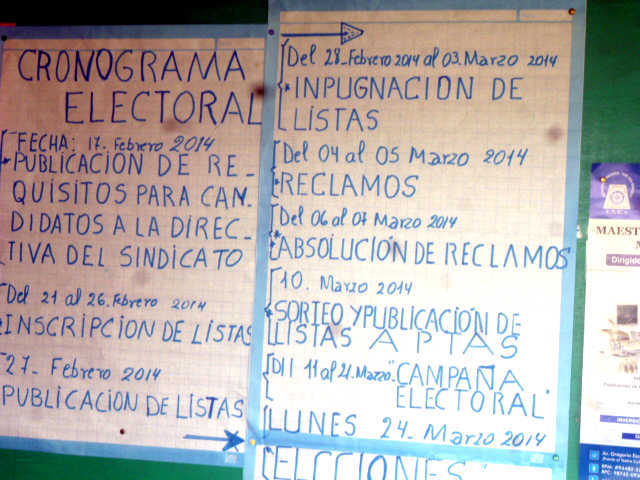 CRONOGRAMA
ELECTORAL
FECHA: 17. Febrero 2014
PUBLICACION DE RE_
QUISITOS PARA CAN_
DIDATOS A LA DIREC_
TIVA DEL SINDICATO
Del 21 al 26. Febrero 2014
INSCRIPCION DE LISTAS
27_ Febrero 2014
PUBLICACION DE LISTAS
Del 28_Febrero 2014 al 03. Marzo 2014
INPUGNACION DE
LISTAS
Del 04 al 05 Marzo 2014
RECLAMOS
Del 06 al 07 Marzo 2014
ABSOLUCIÓN DE RECLAMOS
10. Marzo 2014
SORTEO Y PUBLICACIÓN DE
LISTAS APTAS
Dll 11 al 21. Marzo "CAMPAÑA
ELECTORAL"
LUNES 24_ Marzo 2014
ELECCIONES
MAEST
Dirigido